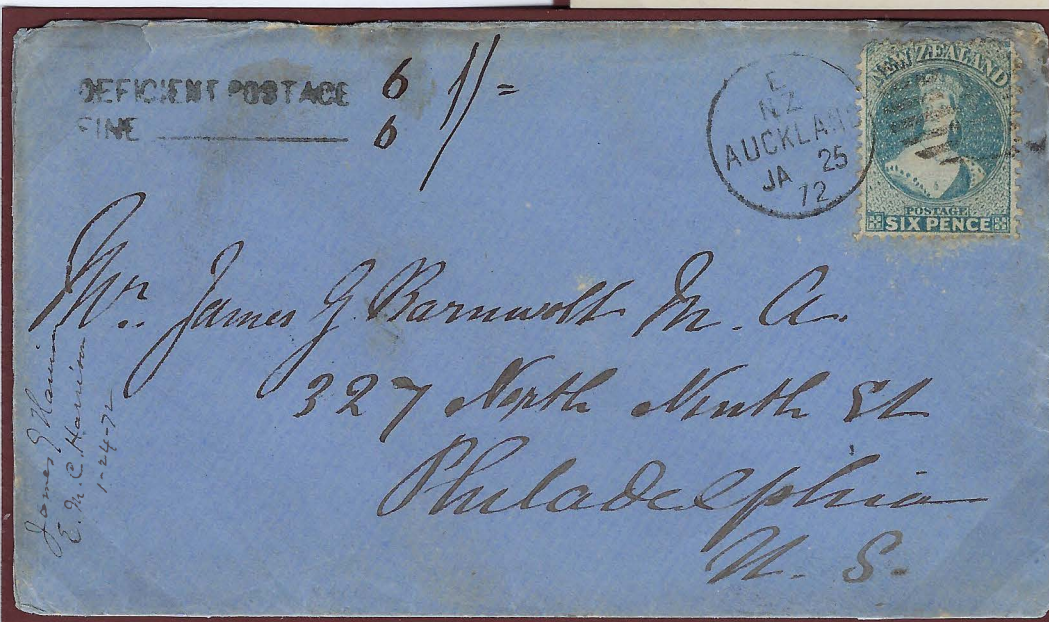 DEFICIENT POSTAGE 6 1/=
FINE 6
E
NZ
AUCKLAND
JA 25
72
NEW ZEALAND
POSTAGE
SIX PENCE
Mr. James G Barnwolt M. A.
327 North Ninth St
Philadelphia
U. S.
James G Harrison
E. M. C. Harrison
1-24-72